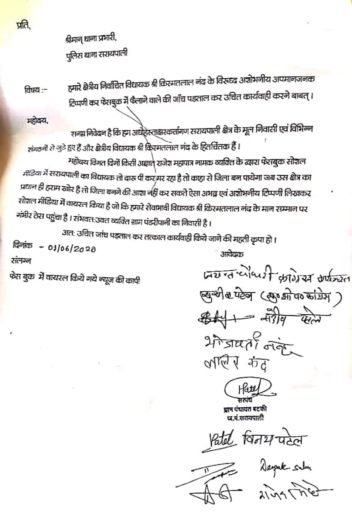 प्रति,
श्रीमान् थाना प्रभारी,
पुलिस थाना सरायपाली
विषय :- हमारे क्षेत्रीय निर्वाचित विधायक श्री किस्मतलाल नंद के विरूध्द अशोभनीय अपमानजनक
टिप्पणी कर फेसबुक में फैलाने वाले की जाँच पड़ताल कर उचित कार्यवाही करने बाबत् ।
महोदय,
सनम्र निवेदन है कि हम अधोहस्ताक्षरकर्तागण सरायपाली क्षेत्र के मूल निवासी एवं विभिन्न
संगठनों से जुड़े हुए हैं और क्षेत्रीय विधायक श्री किस्मतलाल नंद के हितचिंतक हैं ।
महोदय विगत दिनों किसी अज्ञात् राजेश महापात्र नामक व्यक्ति के व्दारा फेसबुक सोशल
मीडिया में सरायपाली का विधायक तो दारू पी कर मर रहा है तो कहा से जिला बन पायेगा जब उस क्षेत्र का
प्रधान ही हराम खोर है तो जिला बनने की आशा नहीं कर सकते ऐसा अभद्र एवं अशोभनीय टिप्पणी लिखकर
सोशल मीडिया में वायरल किया है जो कि हमारे सेवाभावी विधायक श्री किस्मतलाल नंद के मान सम्मान पर
गंभीर ठेस पहुंचा है । संभवतः उक्त व्यक्ति ग्राम पंडरीपानी का निवासी है ।
अतः उचित जाँच पड़ताल कर तत्काल कार्यवाही किये जाने की महती कृपा हो ।
दिनांक - 01/06/2020
आवेदक
संलग्न
फेस बुक में वायरल किये गये न्यूज की कापी
चौधरी कांग्रेस
पटेल
पटेल
नन्द
सरपंच
ग्राम पंचायत
सरायपाली
Patel विनय पटेल
Deepak